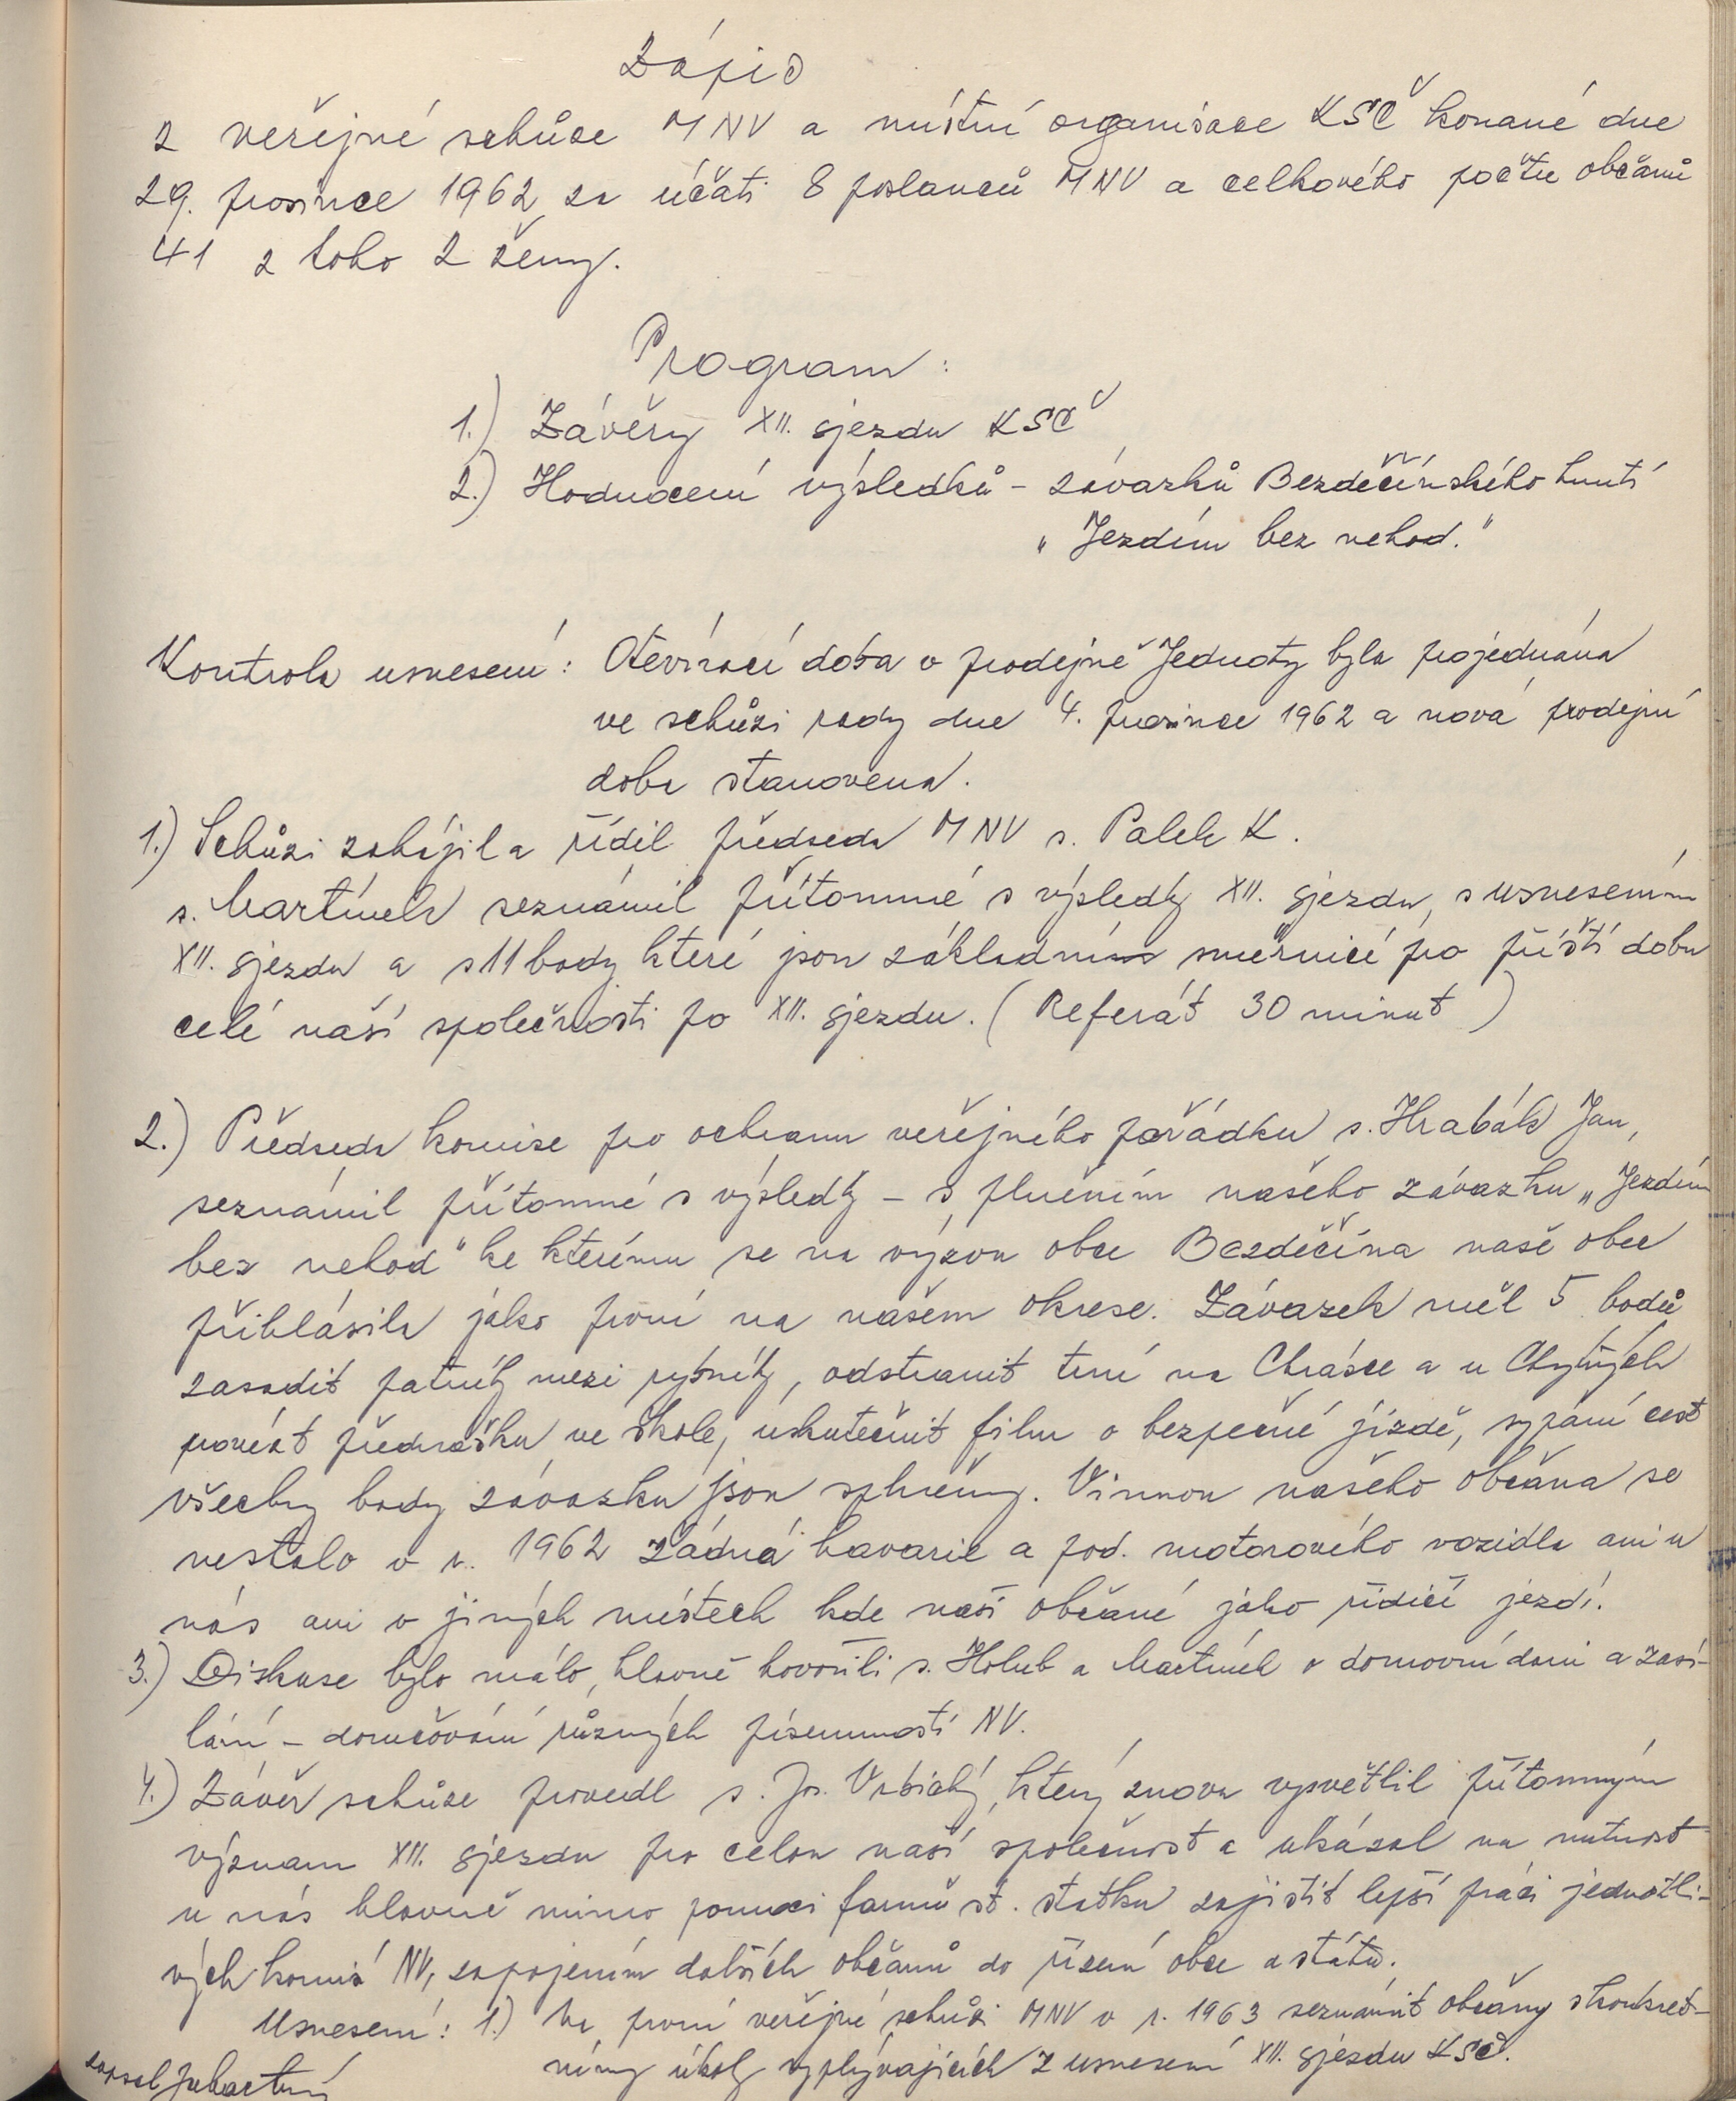 Zápis
z veřejné schůze MNV a místní organisace KSČ konané dne
29. prosince 1962 za účasti 8 poslanců MNV a celkového počtu občanů
41 z toho 2 ženy.
Program:
1.) Závěry XII. sjezdu KSČ
2.) Hodnocení výsledků - závazků Bezděčínského hnutí
„Jezdím bez nehod."
Kontrola usnesení: Otevírací doba v prodejně Jednoty byla projednána
ve schůzi rady dne 4. prosince 1962 a nová prodejní
doba stanovena.
1.) Schůzi zahájil a řídil předseda MNV s. Palek K.
s. Martínek seznámil přítomné s výsledky XII. sjezdu, s usnesením
XII. sjezdu a s 11 body které jsou základní směrnicí pro příští dobu
celé naší společnosti po XII. sjezdu. (Referát 30 minut)
2.) Předseda komise pro ochranu veřejného pořádku s. Hrabák Jan,
seznámil přítomné s výsledky - s plněním našeho závazku „Jezdím
bez nehod" ke kterému se na výzvu obce Bezděčína naše obec
přihlásila jako první na našem okrese. Závazek měl 5 bodů
zasadit patníky mezi rybníky, odstranit trní na Chrásce a u
provést přednášku ve škole, uskutečnit film o bezpečné jízdě, sypání cest
všechny body závazku jsou splněny. Vinnou našeho občana se
nestalo v r. 1962 žádná havarie a pod. motorového vozidla ani u
nás ani v jiných místech kde naši občané jako řidiči jezdí.
3.) Diskuse bylo málo, hlavně hovořili s. Holub a Martínek o domovní dani a zasí-
lání - doručování různých písemností NV.
4.) Závěr schůze provedl s. Jos. Vrbický, který znovu vysvětlil přítomným
význam XII. sjezdu pro celou naší společnost a ukázal na nutnost
u nás hlavně mimo pomoci farmě st. statku zajistit lepší práci jednotli-
vých komisí NV, zapojením dalších občanů do řízení obce a státu.
Usnesení: 1.) Na první veřejné schůzi MNV v r. 1963 seznámit občany s konkret-
ními úkoly vyplývajících z usnesení XII. sjezdu KSČ.
zapsal